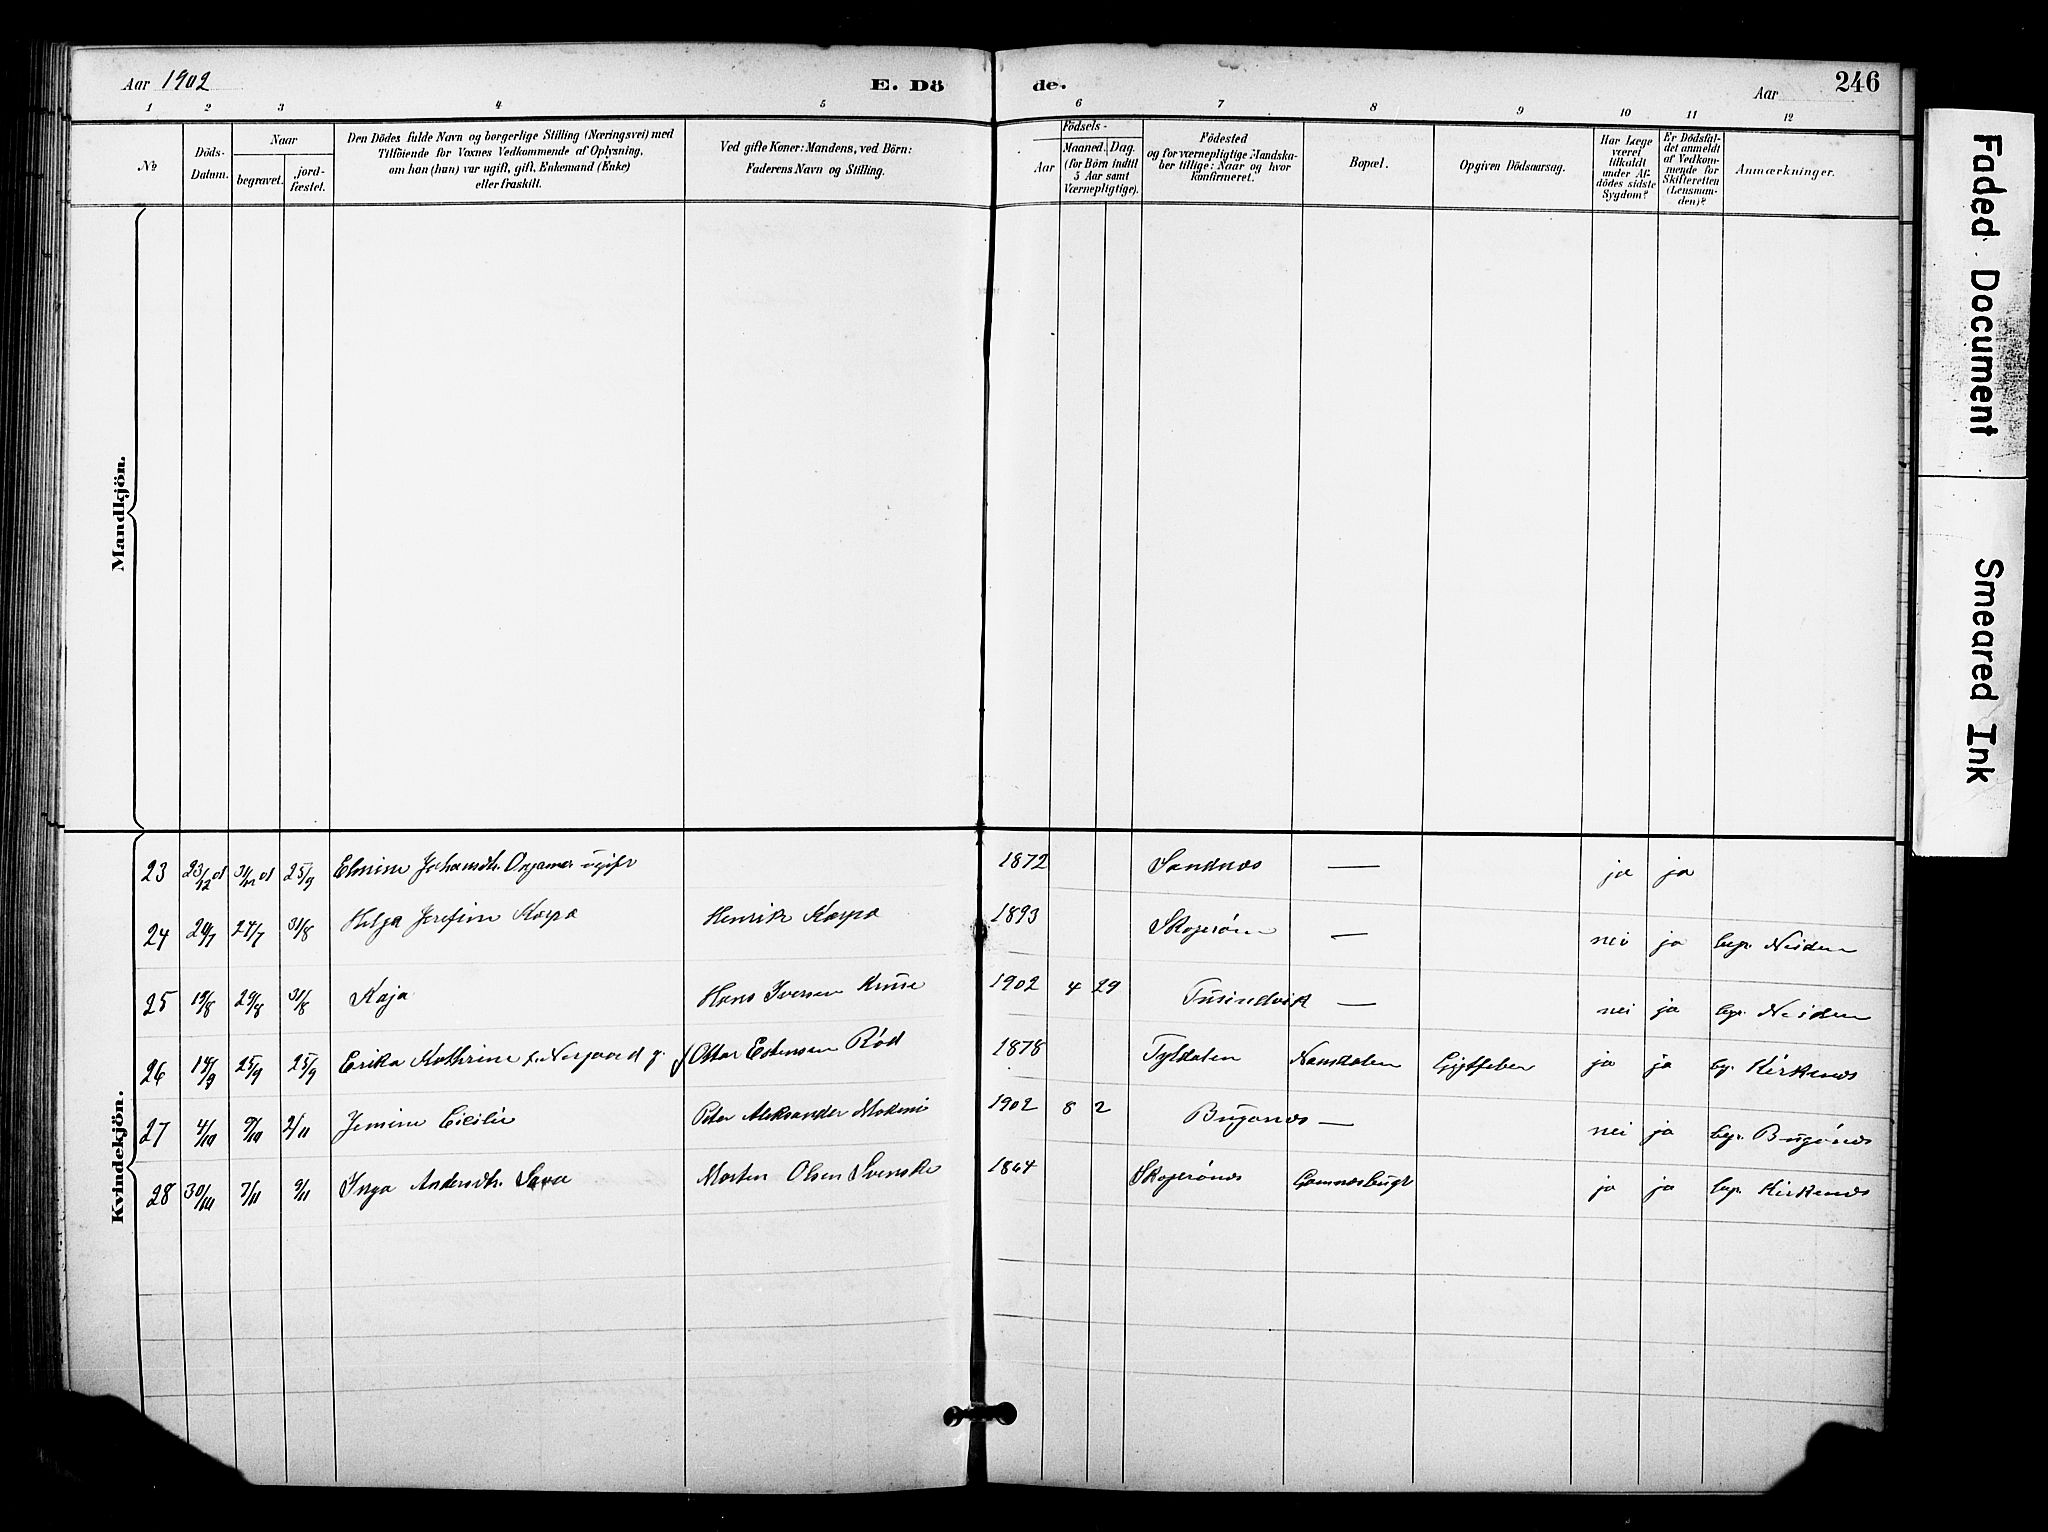 Aar 1902
E. Dö
de.
Aar
246
1 2 3 4 5 6 7 8 9 10 11 12
No
Döds-
Datum.
Naar
begravet.
jord-
fæstet.
Den Dödes fulde Navn og borgerlige Stilling (Næringsvei) med
Tilföiende for Voxnes Vedkommende af Oplysning,
om han (hun) var ugift, gift, Enkemand (Enke)
eller fraskilt.
Ved gifte Koner: Mandens, ved Börn:
Faderens Navn og Stilling.
Födsels-
Aar
Maaned. Dag.
(for Börn indtil
5 Aar samt
Værnepligtige).
Födested
og for værnepligtige Mandska-
ber tillige: Naar og hvor
konfirmeret.
Bopæl.
Opgiven Dödsaarsag.
Har Læge
været
tilkaldt
under Af-
dödes sidste
Sygdom?
Er Dödsfal-
det anmeldt
af Vedkom-
mende for
Skifteretten
(Lensman-
den)?
Anmærkninger.
Mandkjön.
Kvindekjön.
23 23/12 01 31/12 01 25/9 Elmine Johansdtr. ugift 1872 Sandnæs — ja ja
24 27/7 31/8 Helga Josefine Karpa Henrik Karpa 1893 Skogerøen — nei ja bgr. Neiden
25 19/8 29/8 31/8 Kaja Hans Iversen Kruse 1902 4 29 Tusindvik — nei ja bgr. Neiden
26 14/9 25/9 25/9 Erika Kathrine f. Norgaard g. Ottar Estensen Rød 1878 Tyldalen Namdalen Gigtfeber ja ja bgr. Kirkenæs
27 4/10 9/10 2/11 Jemine Cicilie Peter Aleksander Mokeni 1902 8 2 Bugønæs — nei ja bgr. Bugønæs
28 30/10 7/11 9/11 Inga Andersdtr. Sara Morten Olsen Svenske 1864 Skogerønæs ja ja bgr. Kirkenæs
Faded Document
Smeared Ink